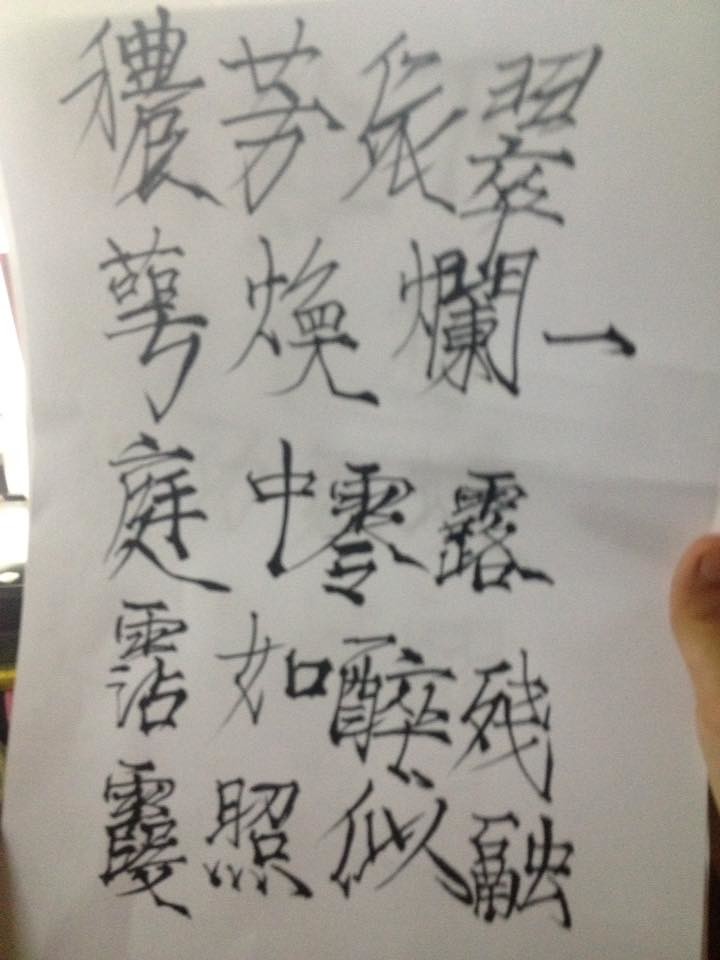 穠芳依翠
萼煥爛一
庭中零露
霑如醉残
霞照似融